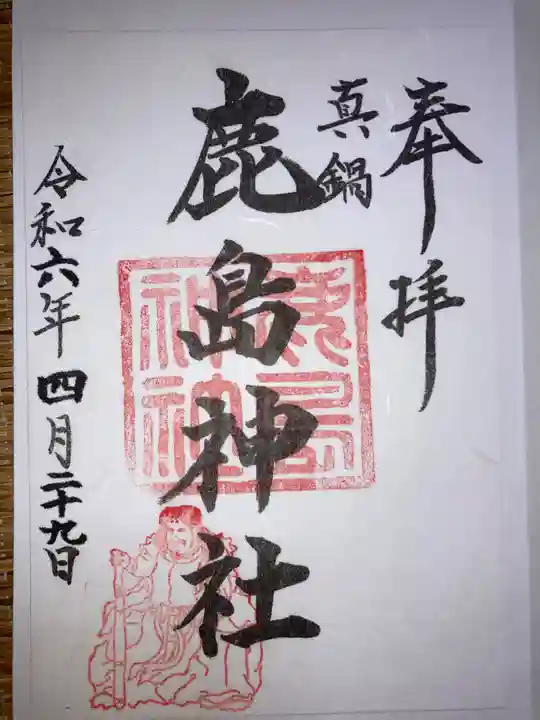 奉拝
真鍋
鹿島神社
令和六年四月二十九日
鹿島神社